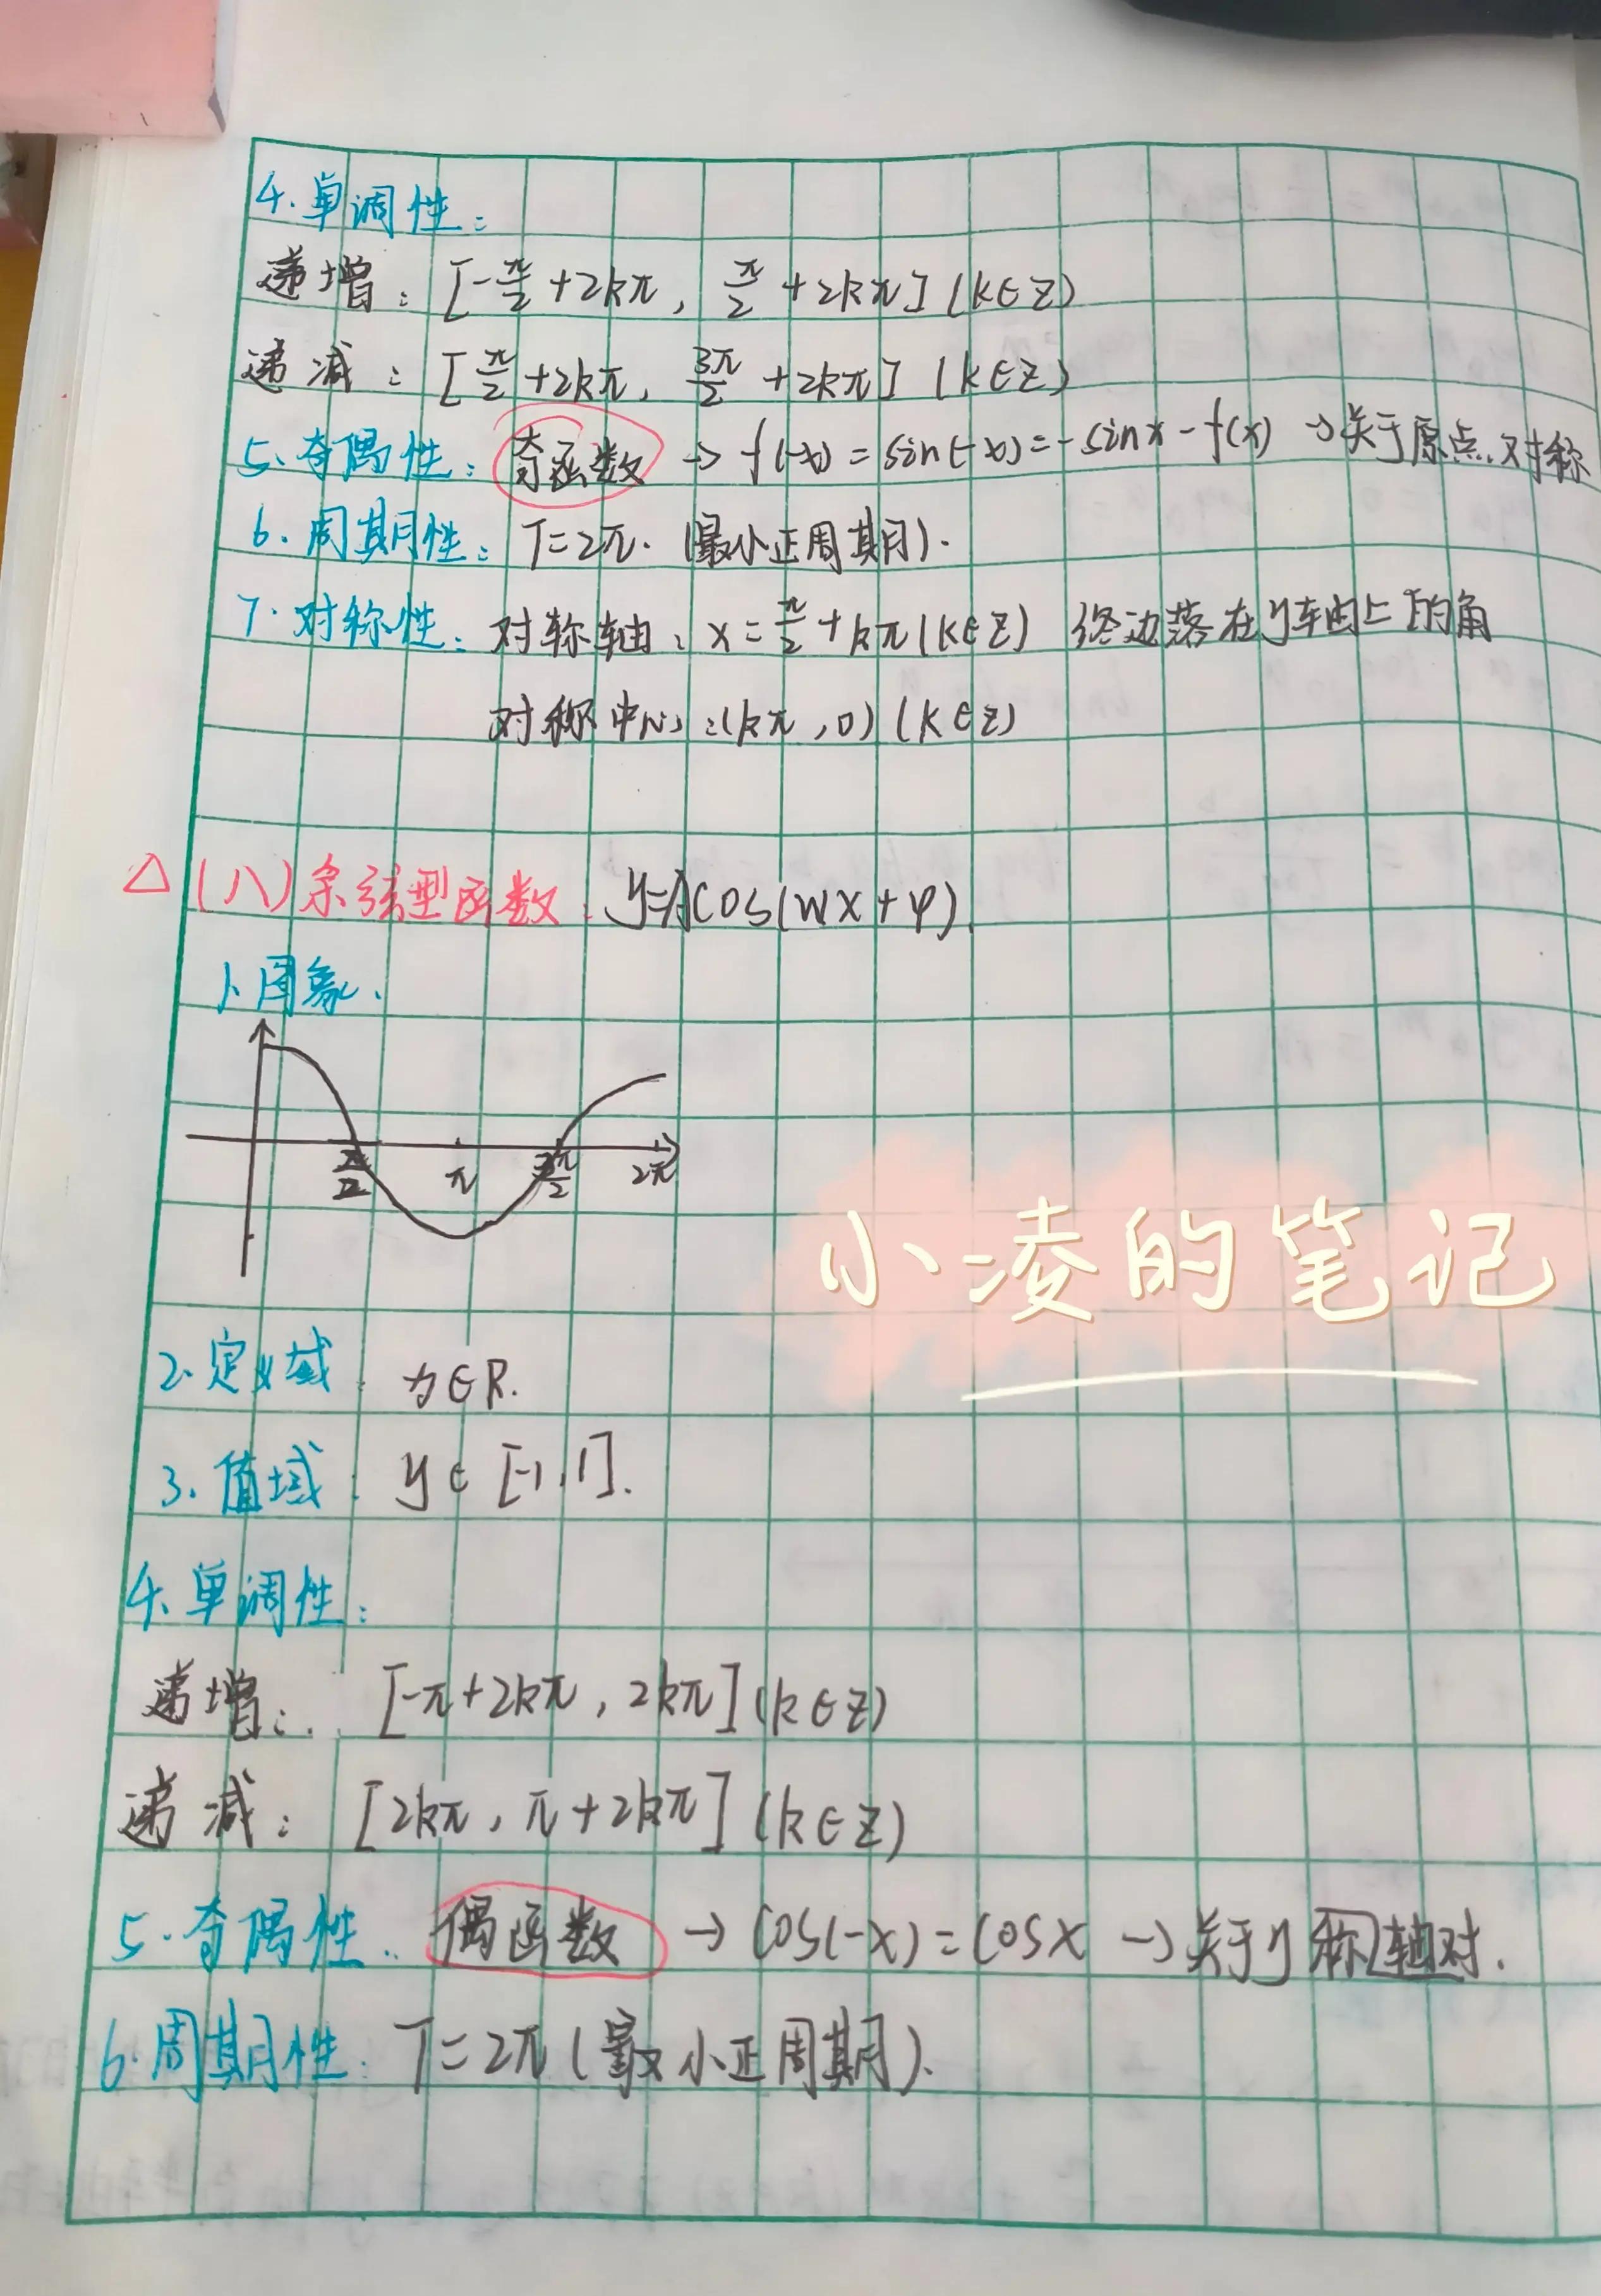 4.单调性:
递增:[-π/2+2kπ, π/2+2kπ](k∈Z)
递减:[π/2+2kπ, 3π/2+2kπ](k∈Z)
5.奇偶性:奇函数→f(-x)=sin(-x)=-sinx-f(x)→关于原点对称
6.周期性:T=2π.(最小正周期).
7.对称性:对称轴:x=π/2+kπ(k∈Z) 终边落在y轴上的角
对称中心:(kπ,0)(k∈Z)
△(八)余弦型函数:y=Acos(wx+φ).
1.图象.
π/2 π 3π/2 2π
小凌的笔记
2.定义域:x∈R.
3.值域:y∈[-1,1].
4.单调性:
递增:[-π+2kπ,2kπ](k∈Z)
递减:[2kπ,π+2kπ](k∈Z)
5.奇偶性:偶函数→cos(-x)=cosx→关于y称轴对.
6.周期性:T=2π(最小正周期).